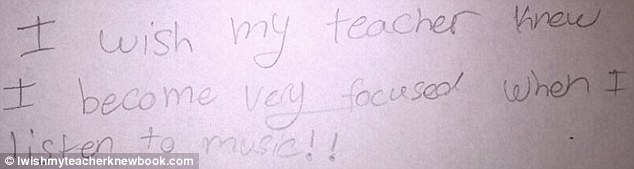 I wish my teacher knew
I become very focused when I
listen to music!!
© Iwishmyteacherknewbook.com